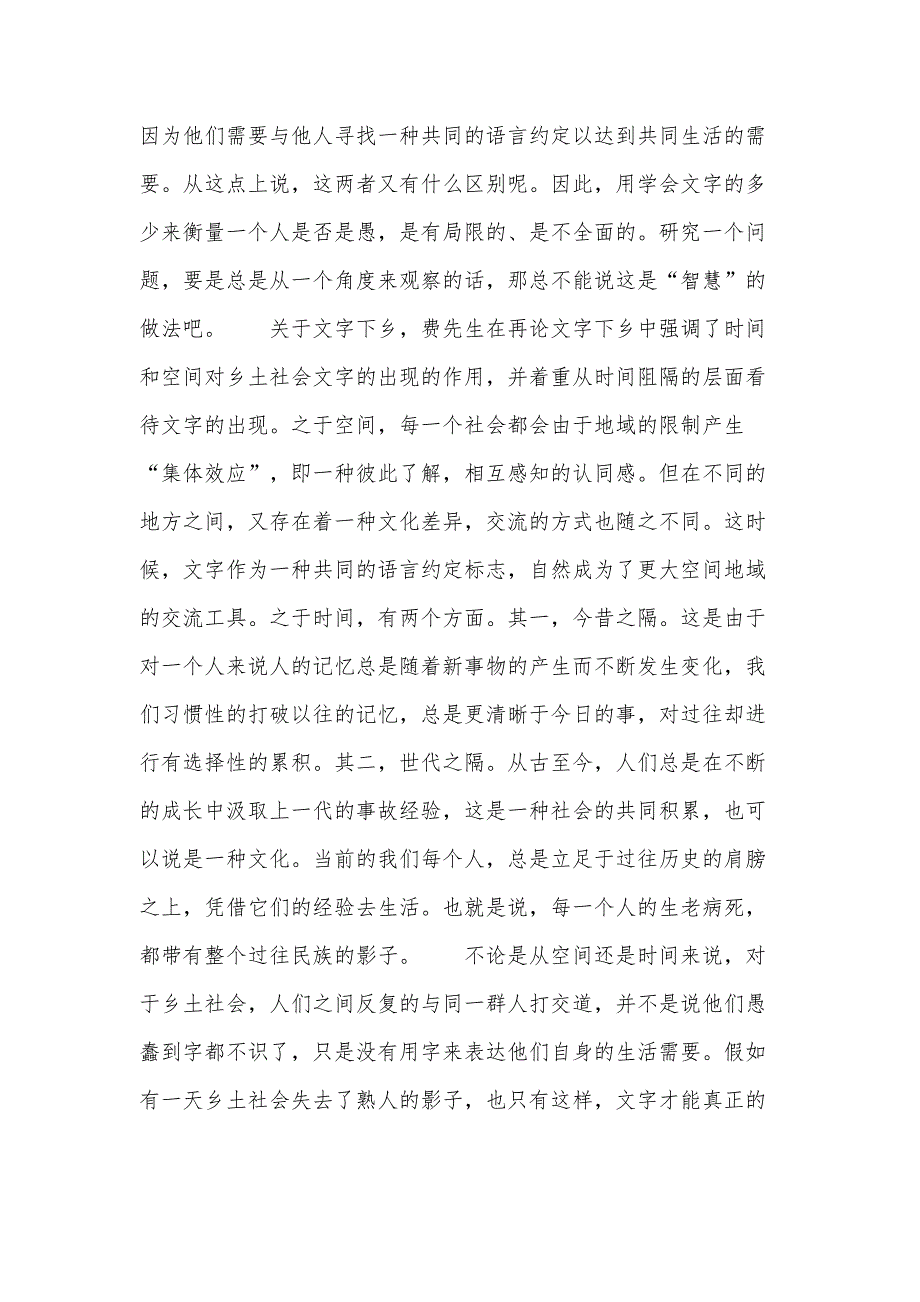 因为他们需要与他人寻找一种共同的语言约定以达到共同生活的需
要。从这点上说，这两者又有什么区别呢。因此，用学会文字的多
少来衡量一个人是否是愚，是有局限的、是不全面的。研究一个问
题，要是总是从一个角度来观察的话，那总不能说这是“智慧”的
做法吧。　　关于文字下乡，费先生在再论文字下乡中强调了时间
和空间对乡土社会文字的出现的作用，并着重从时间阻隔的层面看
待文字的出现。之于空间，每一个社会都会由于地域的限制产生
“集体效应”，即一种彼此了解，相互感知的认同感。但在不同的
地方之间，又存在着一种文化差异，交流的方式也随之不同。这时
候，文字作为一种共同的语言约定标志，自然成为了更大空间地域
的交流工具。之于时间，有两个方面。其一，今昔之隔。这是由于
对一个人来说人的记忆总是随着新事物的产生而不断发生变化，我
们习惯性的打破以往的记忆，总是更清晰于今日的事，对过往却进
行有选择性的累积。其二，世代之隔。从古至今，人们总是在不断
的成长中汲取上一代的事故经验，这是一种社会的共同积累，也可
以说是一种文化。当前的我们每个人，总是立足于过往历史的肩膀
之上，凭借它们的经验去生活。也就是说，每一个人的生老病死，
都带有整个过往民族的影子。　　不论是从空间还是时间来说，对
于乡土社会，人们之间反复的与同一群人打交道，并不是说他们愚
蠢到字都不识了，只是没有用字来表达他们自身的生活需要。假如
有一天乡土社会失去了熟人的影子，也只有这样，文字才能真正的